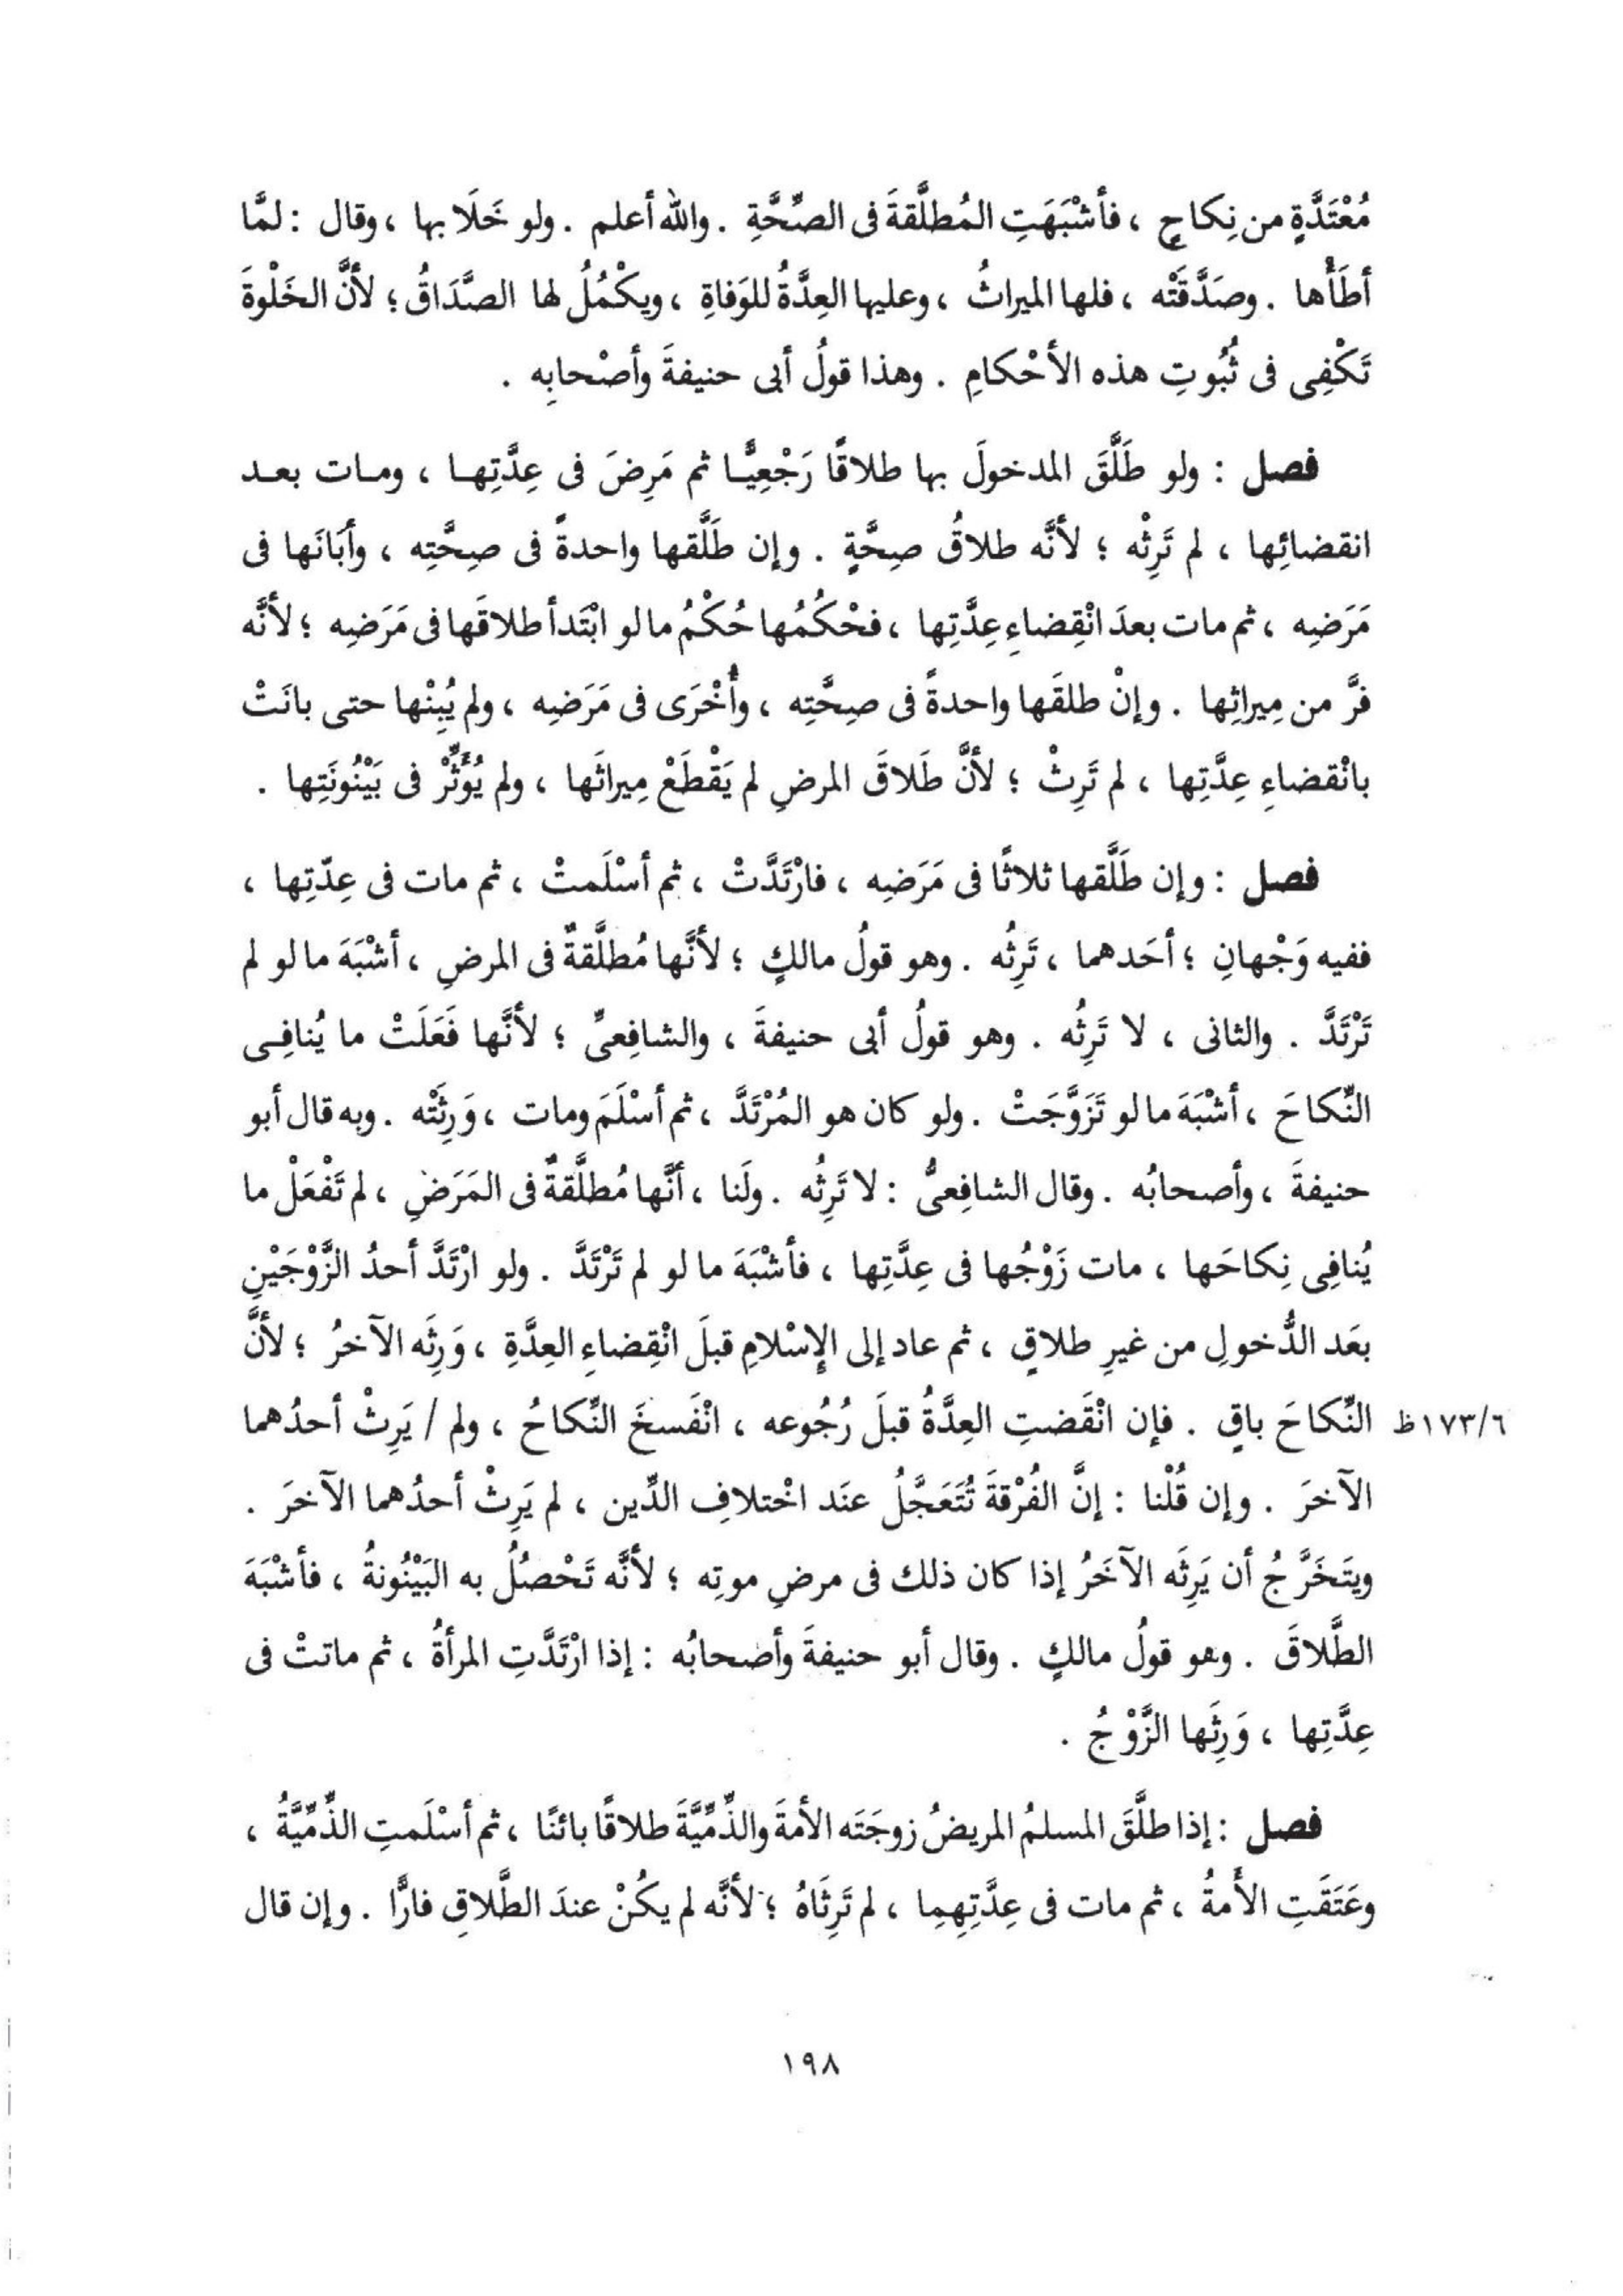 مُعْتَدَّةٍ من نِكاحٍ ، فأشْبَهَتِ المُطلَّقةَ فى الصِّحَّةِ . والله أعلم . ولو خَلَا بها ، وقال : لمَّا
أطَأْها . وصَدَّقَتْه ، فلها الميراثُ ، وعليها العِدَّةُ للوَفاةِ ، ويكْمُلُ لها الصَّدَاقُ ؛ لأنَّ الخَلْوةَ
تَكْفِى فى ثُبُوتِ هذه الأحْكامِ . وهذا قولُ أبى حنيفةَ وأصْحابِه .
فصل : ولو طَلَّقَ المدخولَ بها طلاقًا رَجْعِيًّا ثم مَرِضَ فى عِدَّتِها ، ومات بعد
انقضائِها ، لم تَرِثْه ؛ لأنَّه طلاقُ صِحَّةٍ . وإن طَلَّقها واحدةً فى صِحَّتِه ، وأبَانَها فى
مَرَضِه ، ثم مات بعدَ انْقِضاءِ عِدَّتِها ، فحْكُمُها حُكْمُ ما لو ابْتَدأ طلاقَها فى مَرَضِه ؛ لأنَّه
فرَّ من مِيراثِها . وإنْ طلقَها واحدةً فى صِحَّتِه ، وأُخْرَى فى مَرَضِه ، ولم يُبِنْها حتى بانَتْ
بانْقضاءِ عِدَّتِها ، لم تَرِثْ ؛ لأنَّ طَلاقَ المرضِ لم يَقْطَعْ مِيراثَها ، ولم يُؤَثِّرْ فى بَيْنُونَتِها .
فصل : وإن طَلَّقها ثلاثًا فى مَرَضِه ، فارْتَدَّتْ ، ثم أسْلَمتْ ، ثم مات فى عِدّتِها ،
ففيه وَجْهانِ ؛ أحَدهما ، تَرِثُه . وهو قولُ مالكٍ ؛ لأنَّها مُطلَّقةٌ فى المرضِ ، أشْبَهَ ما لو لم
تَرْتَدَّ . والثانى ، لا تَرِثُه . وهو قولُ أبى حنيفةَ ، والشافِعىِّ ؛ لأنَّها فَعَلَتْ ما يُنافِى
النِّكاحَ ، أشْبَهَ ما لو تَزَوَّجَتْ . ولو كان هو المُرْتَدَّ ، ثم أسْلَمَ ومات ، وَرِثَتْه . وبه قال أبو
حنيفةَ ، وأصحابُه . وقال الشافِعىُّ : لا تَرِثُه . ولَنا ، أنَّها مُطلَّقةٌ فى المَرَضِ ، لم تَفْعَلْ ما
يُنافِى نِكاحَها ، مات زَوْجُها فى عِدَّتِها ، فأشْبَهَ ما لو لم تَرْتَدَّ . ولو ارْتَدَّ أحدُ الزَّوْجَيْنِ
بعَد الدُّخولِ من غيرِ طلاقٍ ، ثم عاد إلى الإسْلامِ قبلَ انْقِضاءِ العِدَّةِ ، وَرِثَه الآخرُ ؛ لأنَّ
النِّكاحَ باقٍ . فإن انْقَضتِ العِدَّةُ قبلَ رُجُوعه ، انْفَسخَ النِّكاحُ ، ولم / يَرِثْ أحدُهما ٦/١٧٣ظ
الآخرَ . وإن قُلْنا : إنَّ الفُرْقةَ تُتَعَجَّلُ عنَد اخْتلافِ الدِّين ، لم يَرِثْ أحدُهما الآخرَ .
ويتَخَرَّجُ أن يَرِثَه الآخَرُ إذا كان ذلك فى مرضِ موتِه ؛ لأنَّه تَحْصُلُ به البَيْنُونةُ ، فأشْبَهَ
الطَّلاقَ . وهو قولُ مالكٍ . وقال أبو حنيفةَ وأصحابُه : إذا ارْتَدَّتِ المرأةُ ، ثم ماتتْ فى
عِدَّتِها ، وَرِثَها الزَّوْجُ .
فصل : إذا طلَّقَ المسلمُ المريضُ زوجَتَه الأمةَ والذِّمِّيَّةَ طلاقًا بائنًا ، ثم أسْلَمتِ الذِّمِّيَّةُ ،
وعَتَقَتِ الأَمةُ ، ثم مات فى عِدَّتِهِما ، لم تَرِثَاهُ ؛ لأنَّه لم يكُنْ عندَ الطَّلاقِ فارًّا . وإن قال
١٩٨